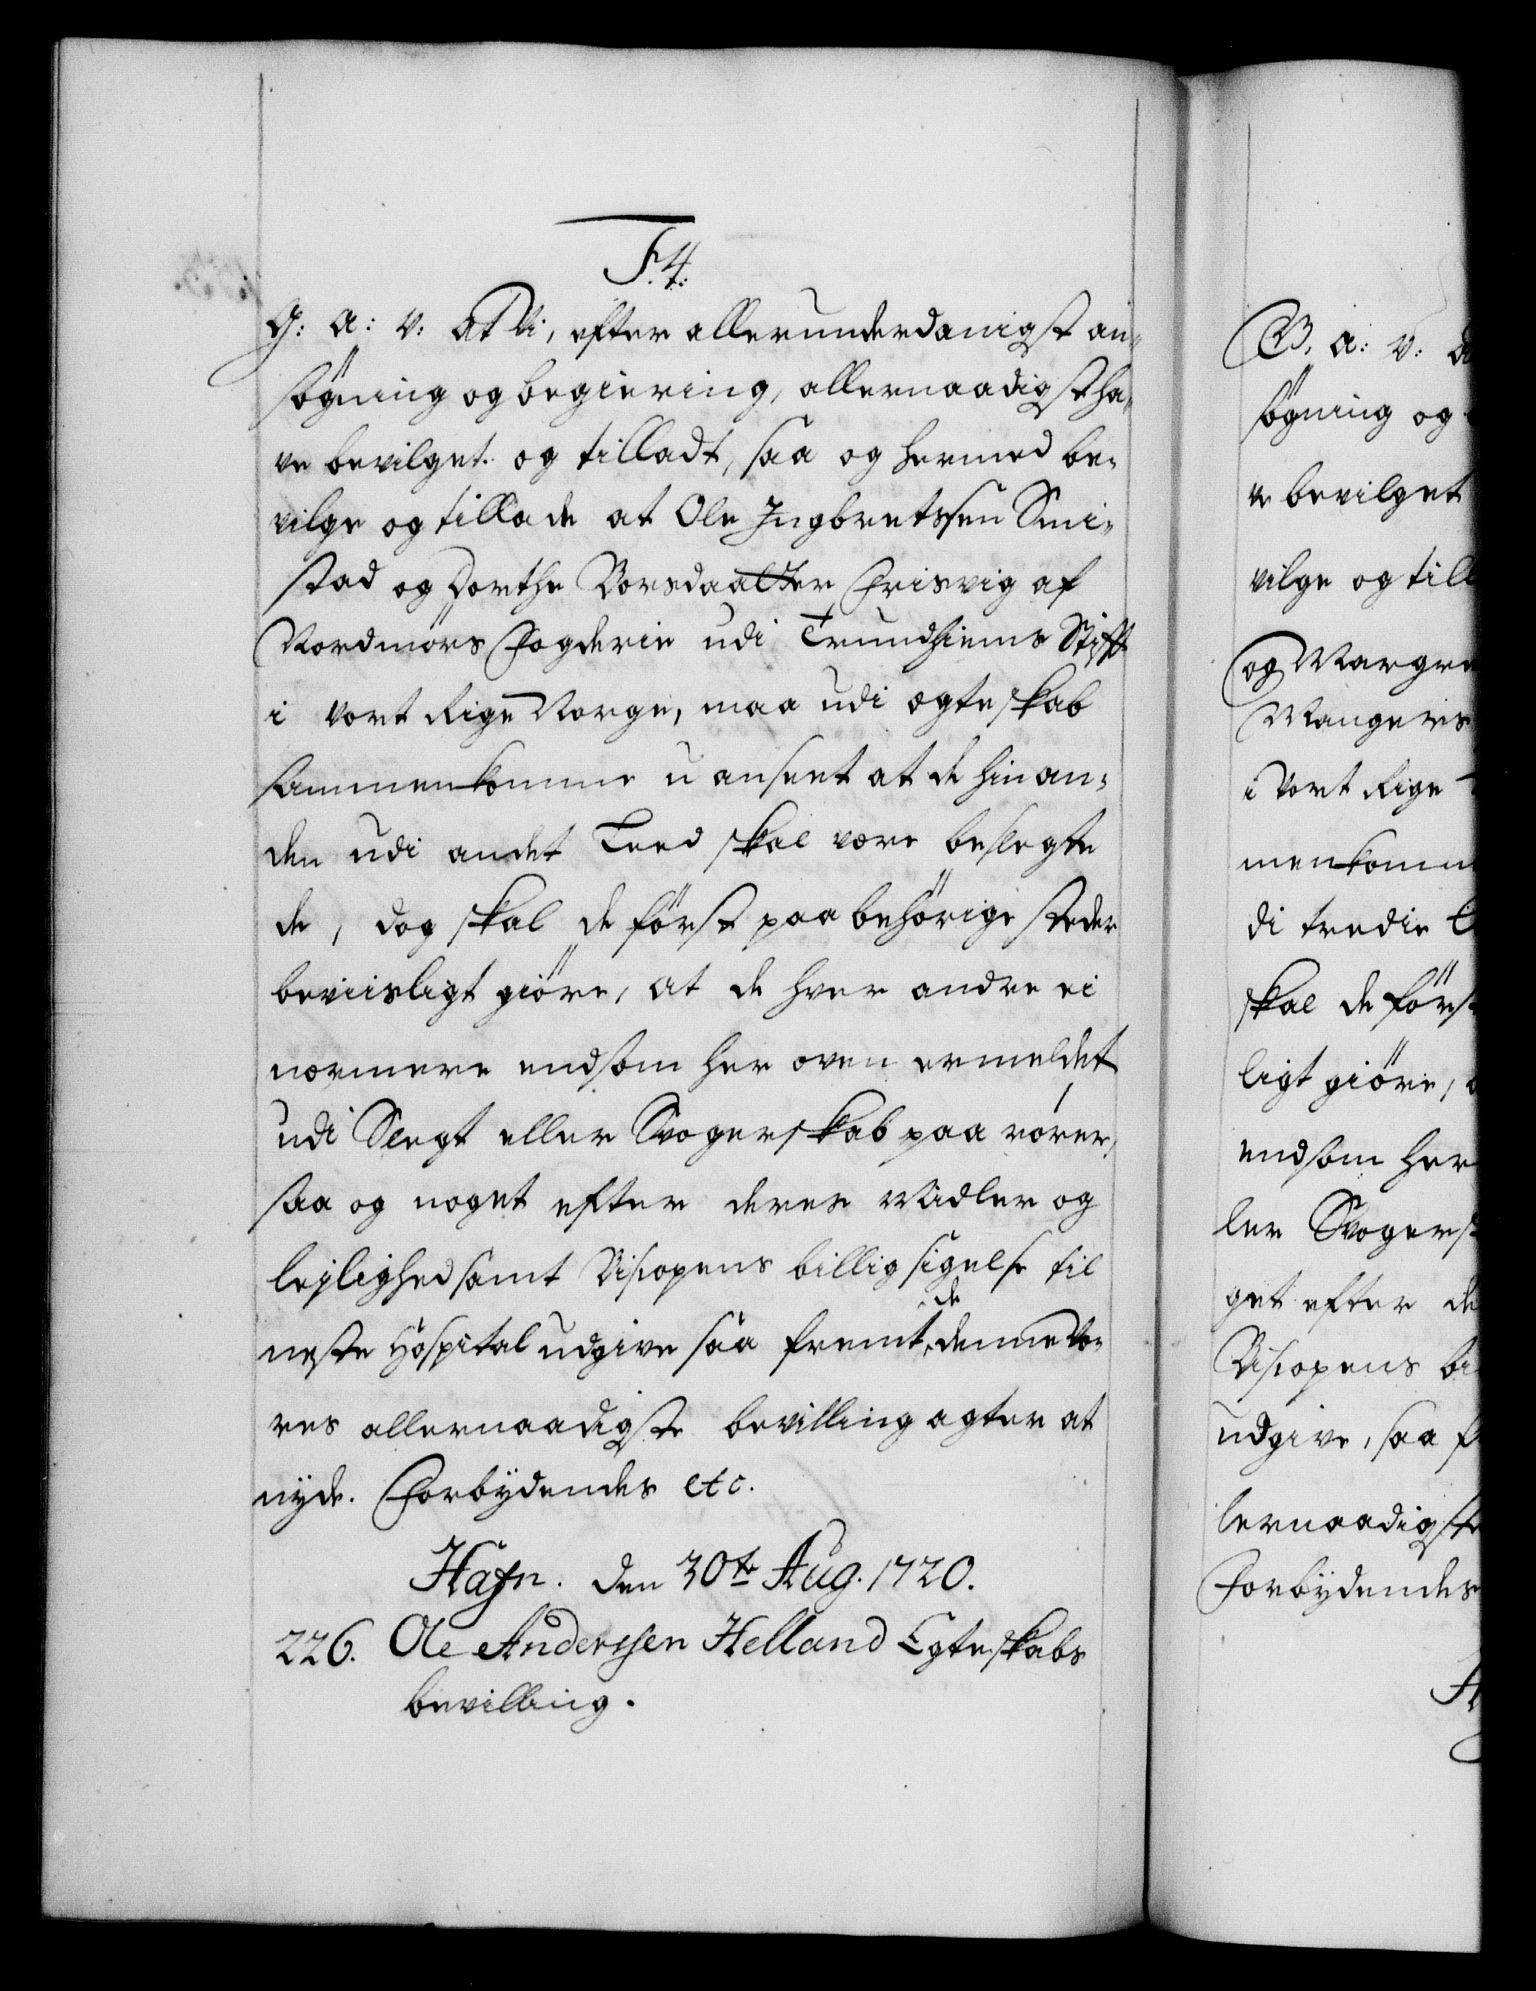 F. 4.
G: a: v: at Vi, efter allerunderdanigst an-
søgning og begiering, allernaadigst ha-
ve bevilget og tilladt, saa og hermed be-
vilge og tillade at Ole Ingbretssen Smi-
stad og Dorthe Torsdaatter Frisvig af
Nordmørs Fogderie udi Trundhiems Stift
i vort Rige Norge, maa udi ægteskab
sammenkomme uanseet at de hinan-
den udi andet Leed skal være beslegte
de, dog skal de først paa behørige steder
beviisligt giøre, at de hver andre ei
nærmere endsom her oven ermeldet
udi Slegt eller Svogerskab paarører,
saa og noget efter deres Midler og
lejlighed samt Biscopens billigsigelse til
neste Hospital udgive saa fremt de denne Vo-
res allernaadigste bevilling agter at
nyde. Forbydendes etc.
Hafn. den 30te Aug. 1720.
226. Ole Anderssen Helland Egteskabs
bevilling.
G. a: v: a
søgning og
ve bevilget
vilge og till
og Margre
Mangers
i Vort Rige
menkomm
di tredie
skal de først
ligt giøre,
endsom her
ler Svogersk
get efter de
Biscopens bi
udgive, saa f
lernaadigste
Forbydendes